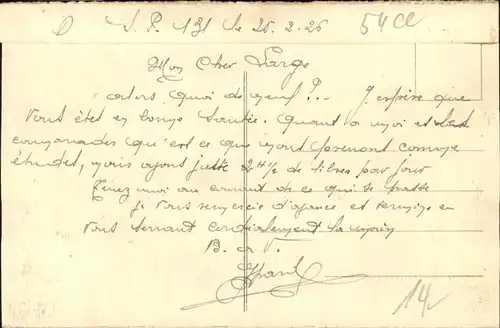 S. P. 131 le 25.2.26
54 Cl
Mon Cher Large
alors quoi de neuf?... J'espère que
vous êtes en bonne santée. Quant a moi et les
camarades qu'est ce que nous prenont comme
études, nous avons juste 2 H 1/2 de libres par jour
Tenez moi au courant de ce qui se passe
je vous remercie d'avance et termine en
vous serrant cordialement la main
B. a V.
14